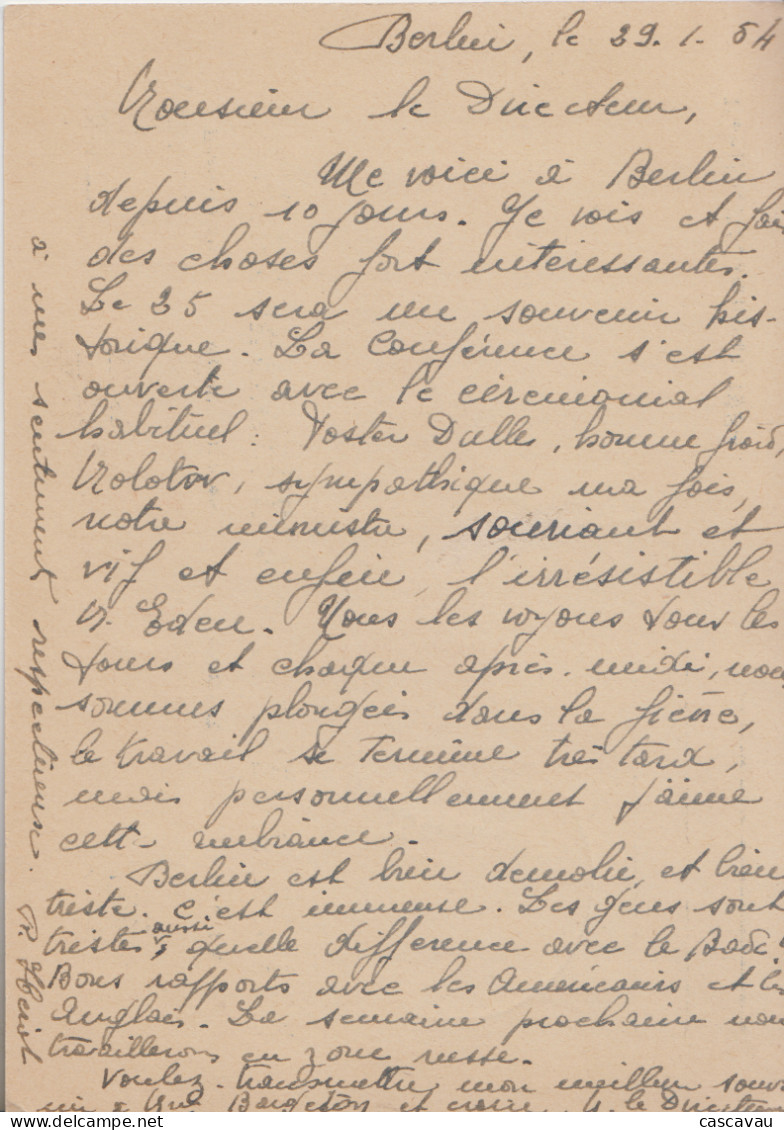 Berlin, le 29.1.54
Monsieur le Directeur,
Me voici à Berlin
depuis 10 jours. Je vois et fais
des choses fort intéressantes.
Le 25 sera un souvenir his-
torique. La Conférence s'est
ouverte avec le cérémonial
habituel : Foster Dulles, homme froid,
Molotov, sympathique ma fois,
notre ministre, souriant et
vif et enfin, l'irrésistible
M. Eden. Nous les voyons tous les
jours et chaque après-midi, nous
sommes plongés dans la fièvre,
le travail se termine très tard,
mais personnellement j'aime
cette ambiance.
Berlin est bien demolie, et bien
triste. C'est immense. Les gens sont
tristes aussi, quelle différence avec le Bade.
Bons rapports avec les Américains et les
Anglais. La semaine prochaine nous
travaillerons en zone russe.
Voulez-transmettre mon meilleur souve
nir à et croire, M. le Directeur
à mes sentiments respectueux.